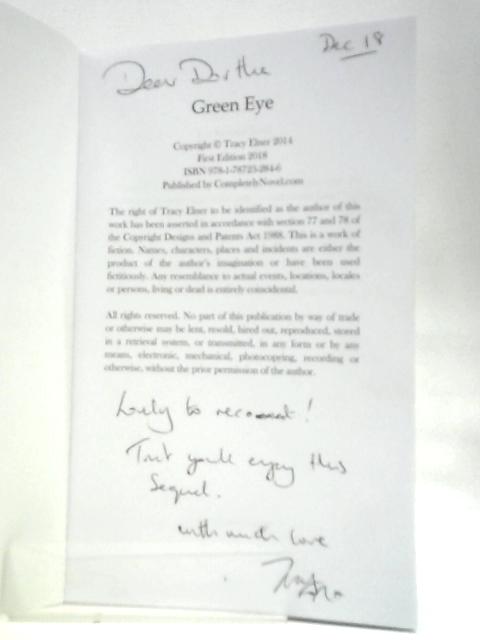 Dec 18
Dear Dorthe
Green Eye
Copyright © Tracy Elner 2014
First Edition 2018
ISBN 978-1-78723-284-6
Published by CompletelyNovel.com
The right of Tracy Elner to be identified as the author of this
work has been asserted in accordance with section 77 and 78 of
the Copyright Designs and Patents Act 1988. This is a work of
fiction. Names, characters, places and incidents are either the
product of the author's imagination or have been used
fictitiously. Any resemblance to actual events, locations, locales
or persons, living or dead is entirely coincidental.
All rights reserved. No part of this publication by way of trade
or otherwise may be lent, resold, hired out, reproduced, stored
in a retrieval system, or transmitted, in any form or by any
means, electronic, mechanical, photocopying, recording or
otherwise, without the prior permission of the author.
Lovely to reconnect!
Trust you'll enjoy this
Sequel.
with much love